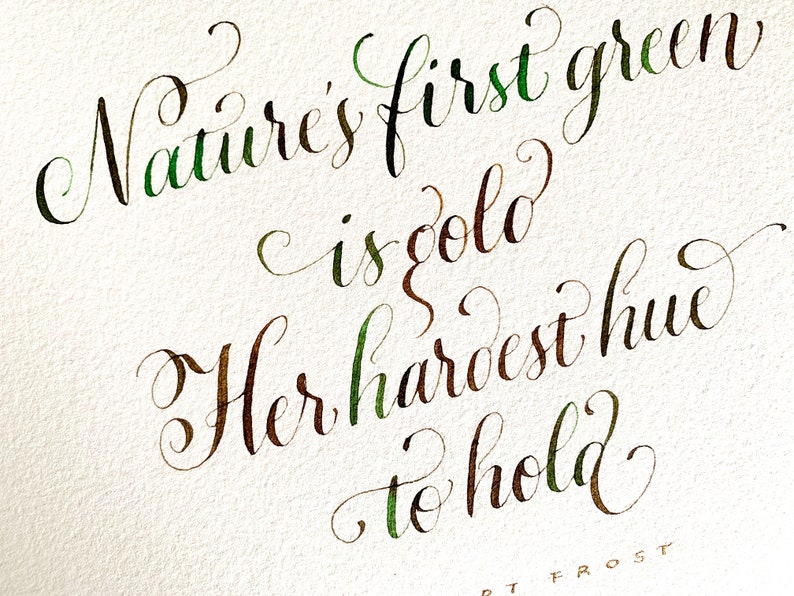 Nature's first green
is gold
Her hardest hue
to hold
RT FROST